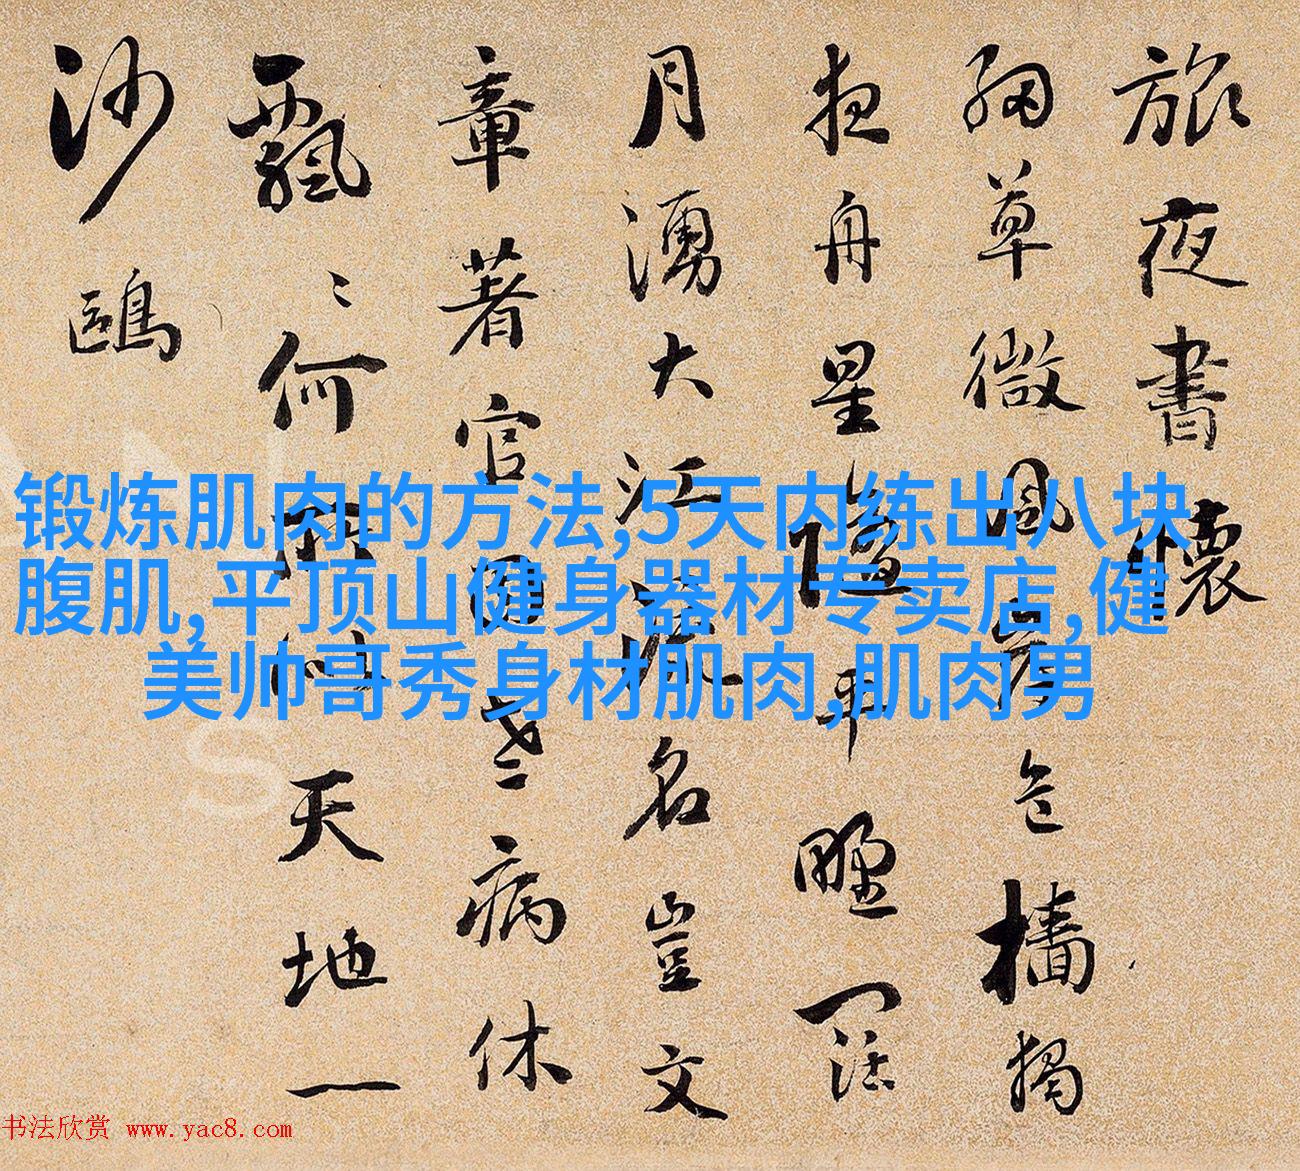 旅夜書懷
細草微風岸危檣獨
夜舟星隨平野闊
月湧大江流名豈文
章著官因老病休
飄〻何所似天地一
沙鷗
锻炼肌肉的方法,5天内练出八块
腹肌,平顶山健身器材专卖店,健
美帅哥秀身材肌肉,肌肉男
书法欣赏 www.yac8.com